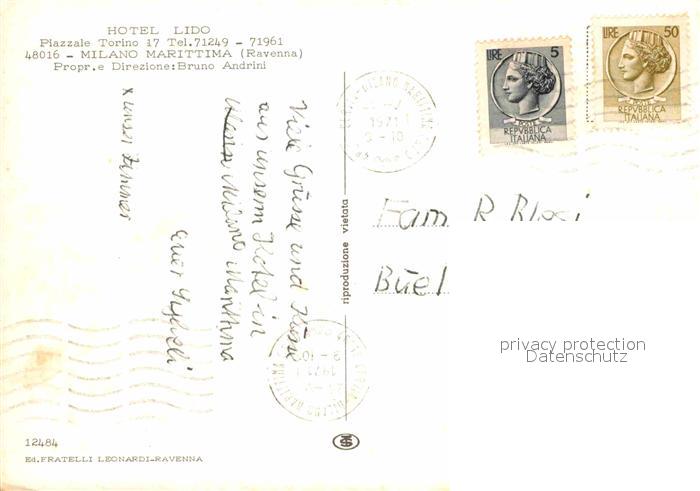 HOTEL LIDO
Piazzale Torino 17 Tel.71249 - 71961
48016 - MILANO MARITTIMA (Ravenna)
Propr.e Direzione:Bruno Andrini
LIRE 5
POSTE
REPVBBLICA
ITALIANA
LIRE 50
POSTE
REPVBBLICA
ITALIANA
MILANO MARITTIMA
1971
9-10
Viele Grüsse und Küsse
aus unserm Hotel in
Milano Marittima
euer
x unser Zimmer
riproduzione vietata
Fam R
Büel
privacy protection
Datenschutz
MILANO MARITTIMA
1971
12484
Ed.FRATELLI LEONARDI-RAVENNA